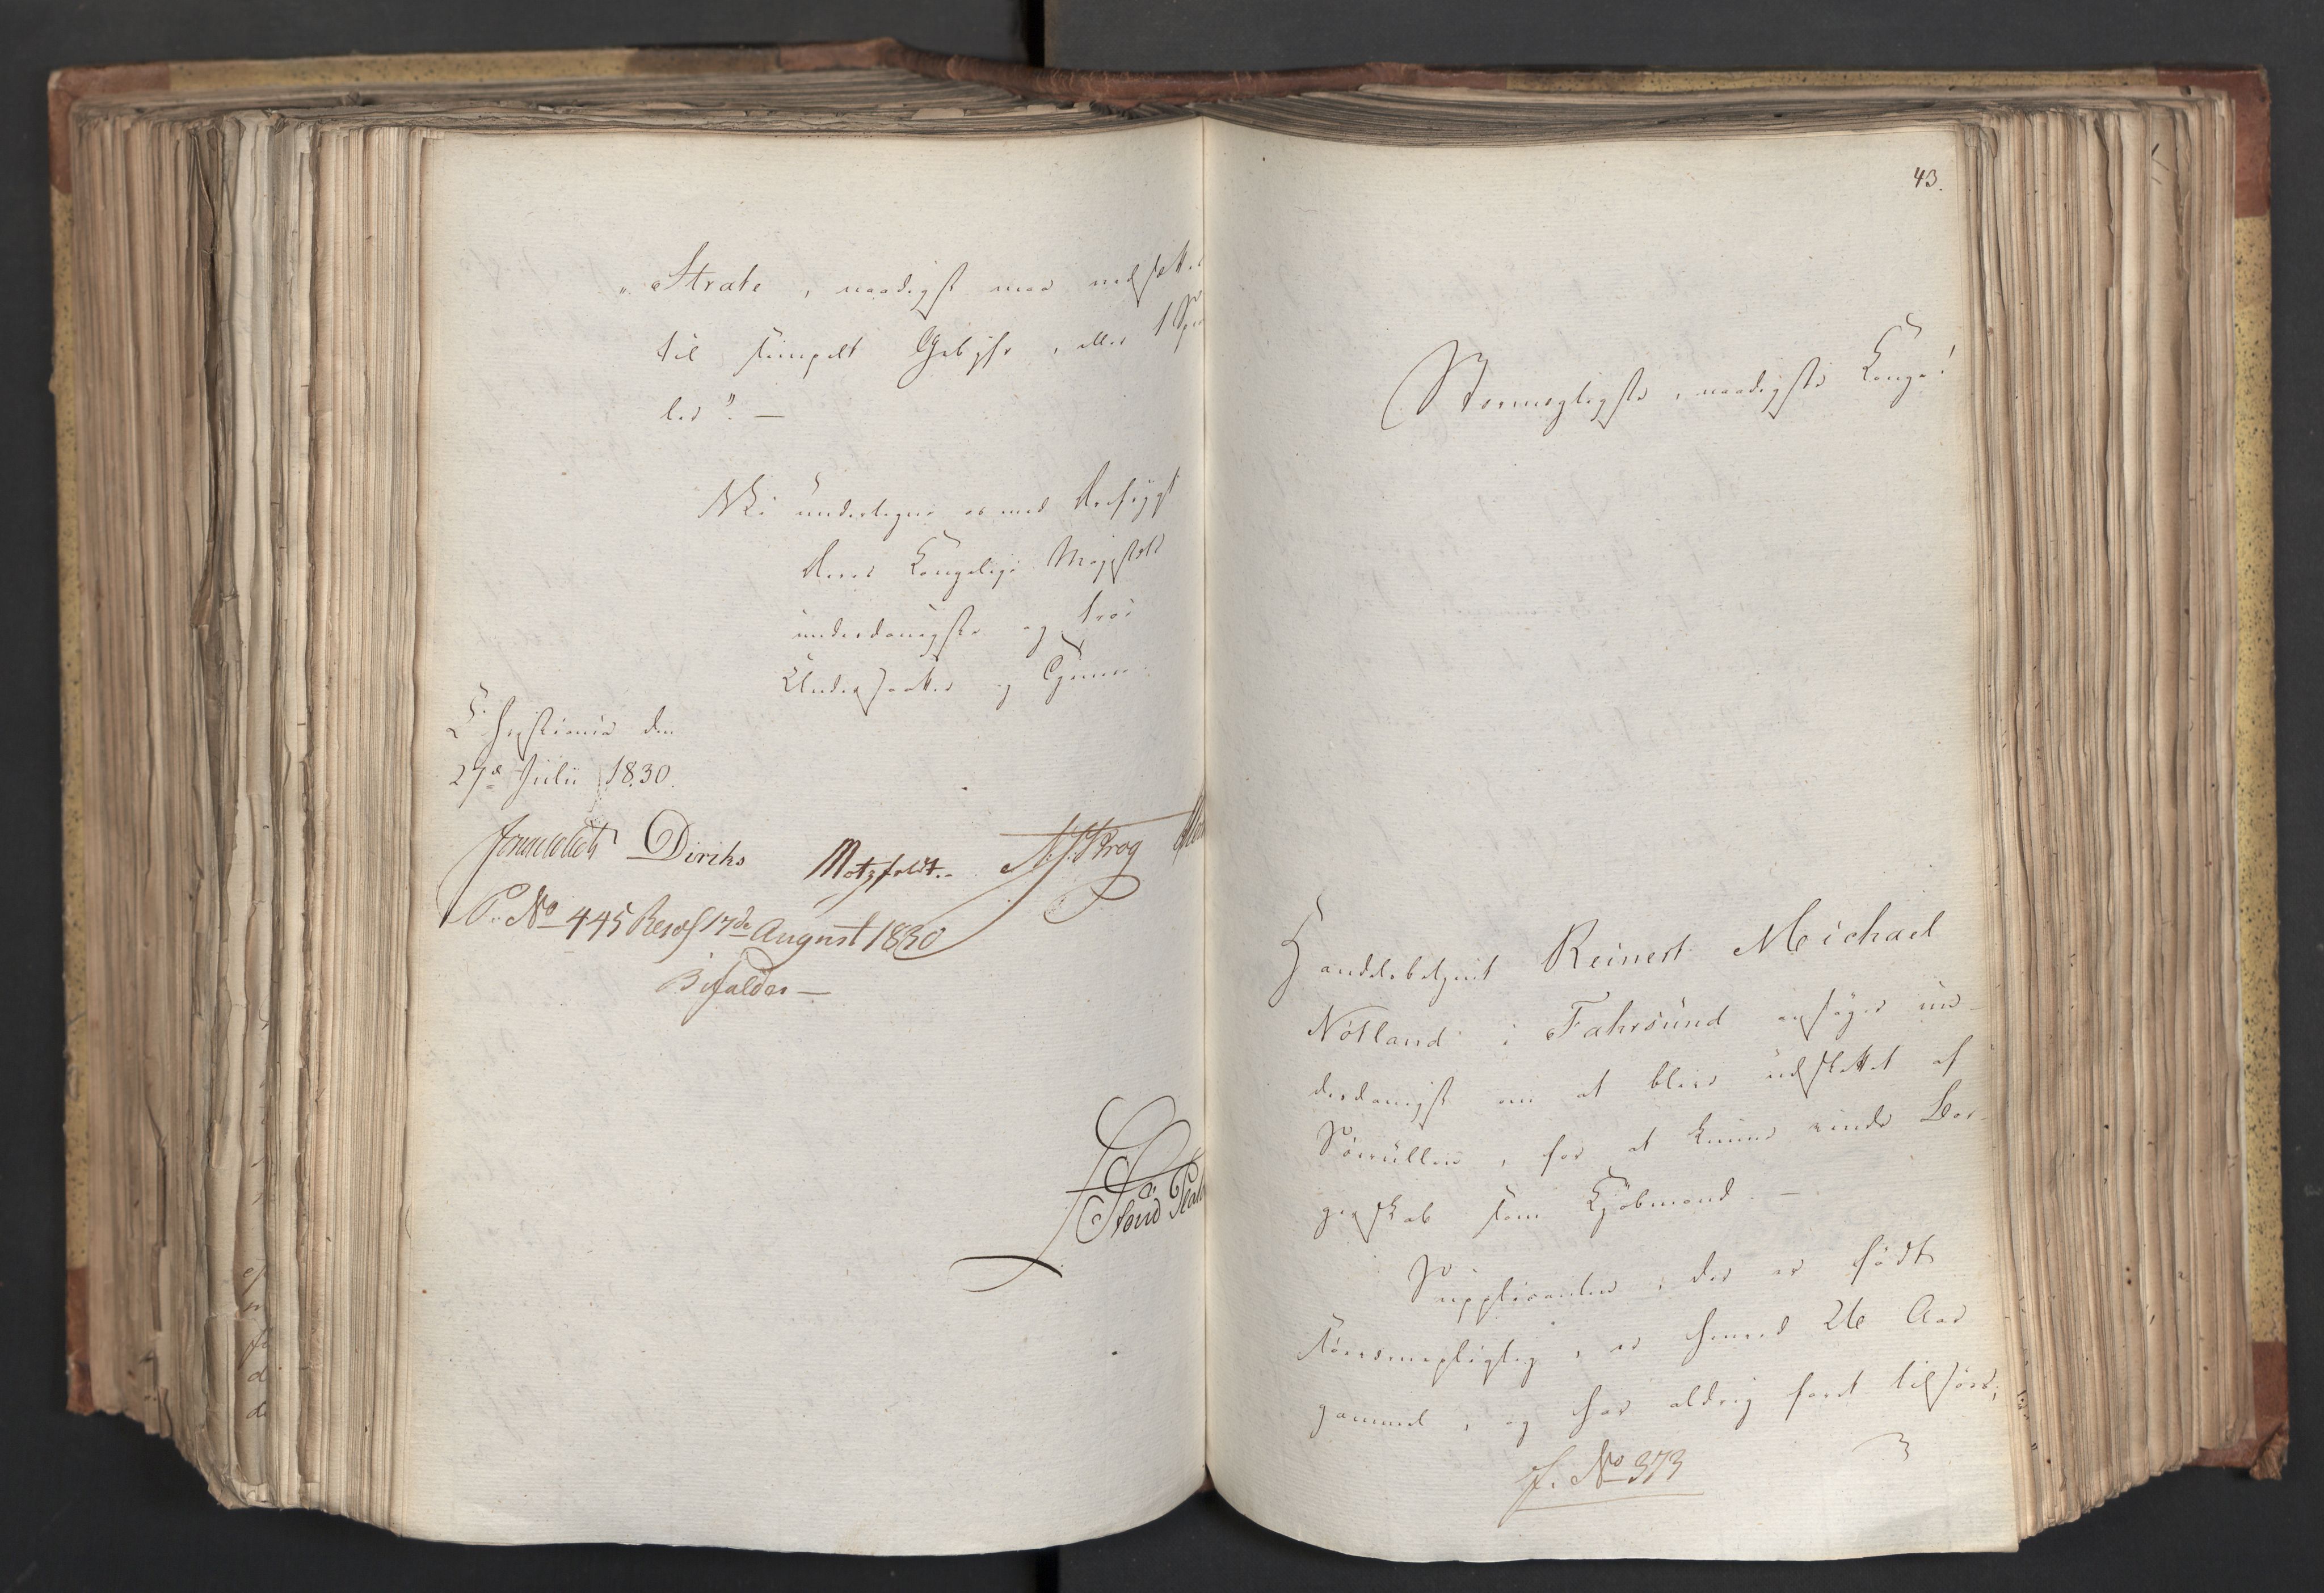 "Strafe, naadigst maa nedsættes
til simpelt Gebyhr, eller 1 Spe
ler". —
Vi undertegne os med Ærefrygt
Deres Kongelige Majestæts
underdanigste og troe
Undersaatter og Tjenere.
Christiania den
27de Julii 1830.
Diriks Motzfeldt. Krog
P. No 445 Resol. 17de August 1830
Bifaldes —
43.
Stormægtigste, naadigste Konge!
Handelsbetjent Reinert Michael
Nötland i Fahrsund ansöger un-
derdanigst om at blive udslettet af
Söerullen, for at kunne vinde Bor-
gerskab som Kjöbmand. —
Supplicanten, der er födt
söeværnepligtig, er henved 26 Aar
gammel, og har aldrig faret tilsöes,
f. No 373